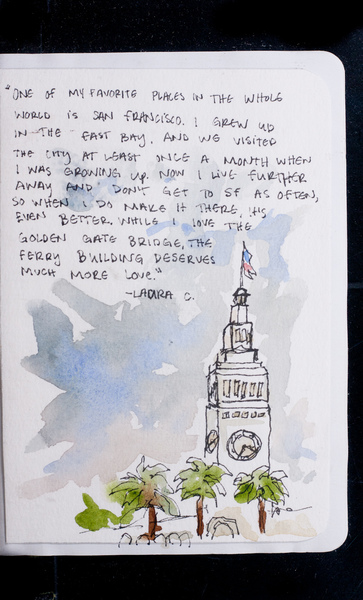 "ONE OF MY FAVORITE PLACES IN THE WHOLE
WORLD IS SAN FRANCISCO. I GREW UP
IN THE EAST BAY, AND WE VISITED
THE CITY AT LEAST ONCE A MONTH WHEN
I WAS GROWING UP. NOW I LIVE FURTHER
AWAY AND DON'T GET TO SF AS OFTEN,
SO WHEN I DO MAKE IT THERE, IT'S
EVEN BETTER. WHILE I LOVE THE
GOLDEN GATE BRIDGE, THE
FERRY BUILDING DESERVES
MUCH MORE LOVE."
-LAURA C.